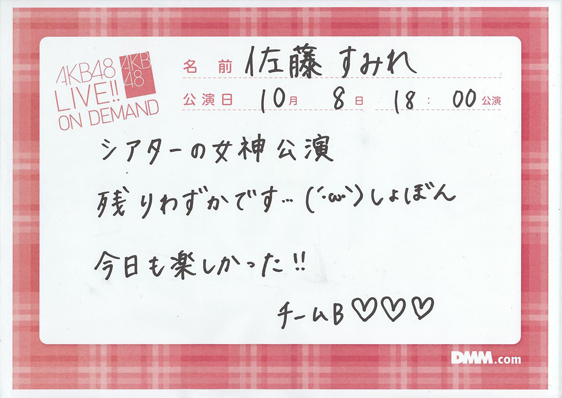 AKB48
LIVE!!
ON DEMAND
AKB
48
名前 佐藤 すみれ
公演日 10月 8日 18:00公演
シアターの女神公演
残りわずかです…(´･ω･`)しょぼん
今日も楽しかった!!
チームB♡♡♡
DMM.com